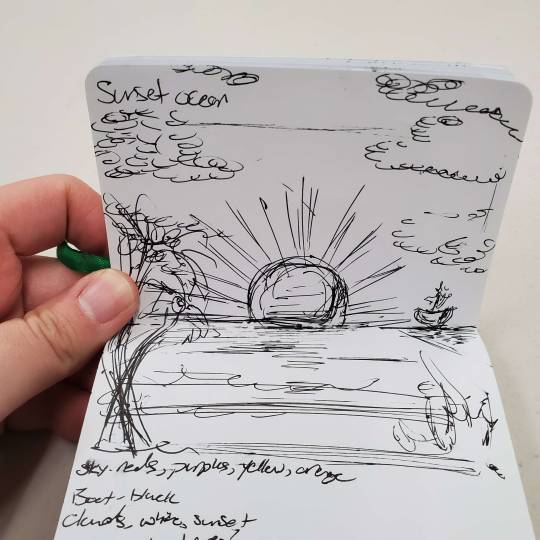 Sunset ocean
sky- reds, purples, yellow, orange
Boat- black
Clouds, white, sunset